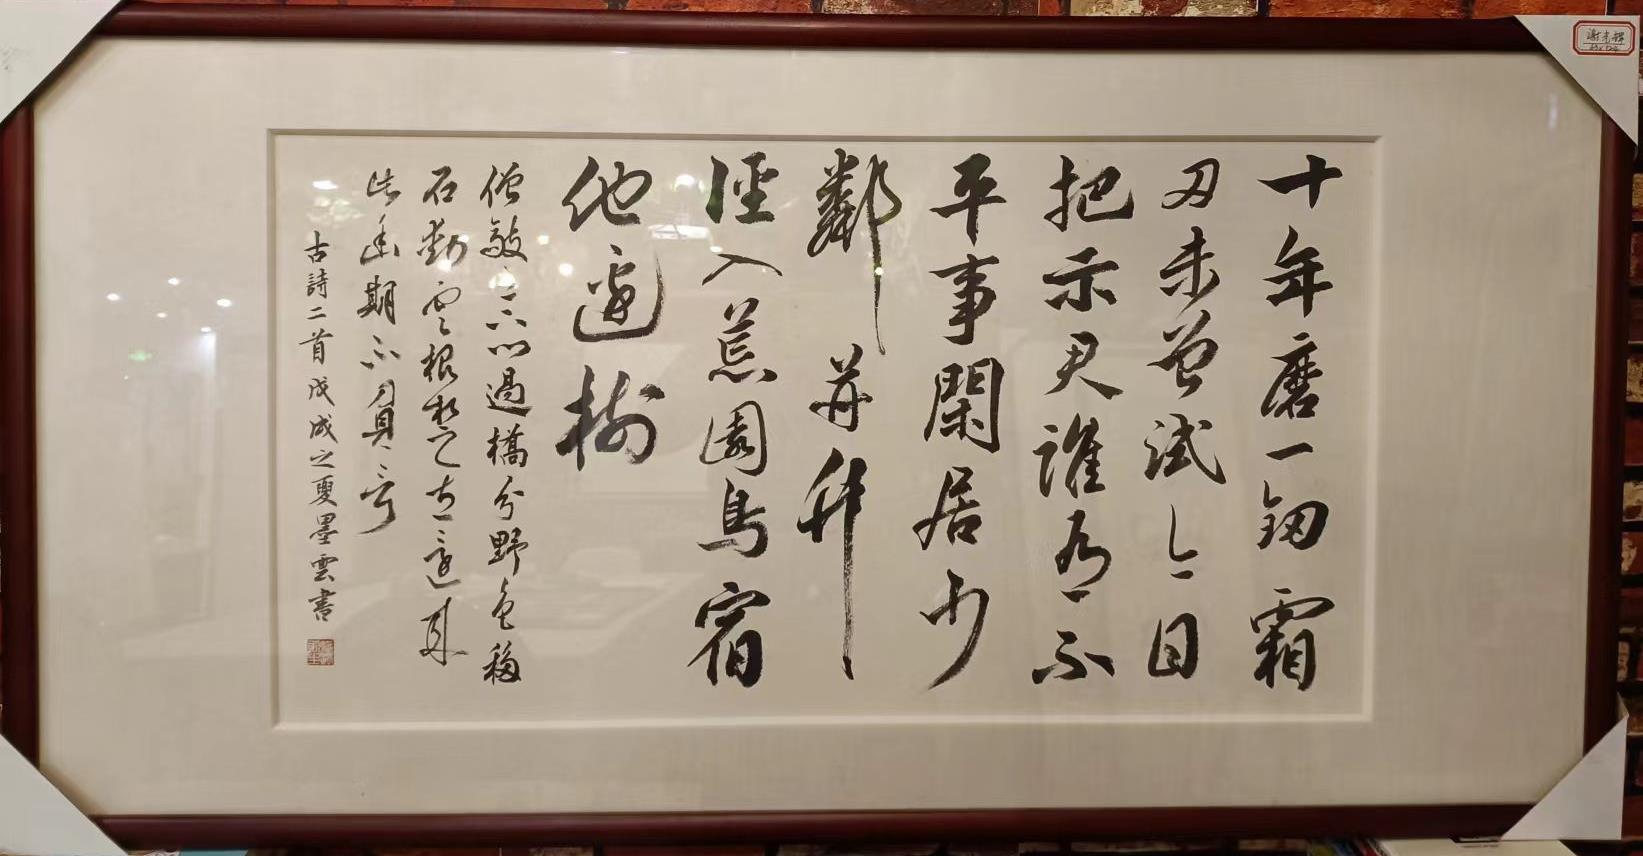 十年磨一釼霜
刃未曾試今日
把示君誰爲不
平事閑居少
鄰并艸
徑入荒園鳥宿
池邊樹
僧敲月下門過橋分野色移
石動雲根暫去還來
此幽期不負言
古詩二首戊戌之夏墨雲書